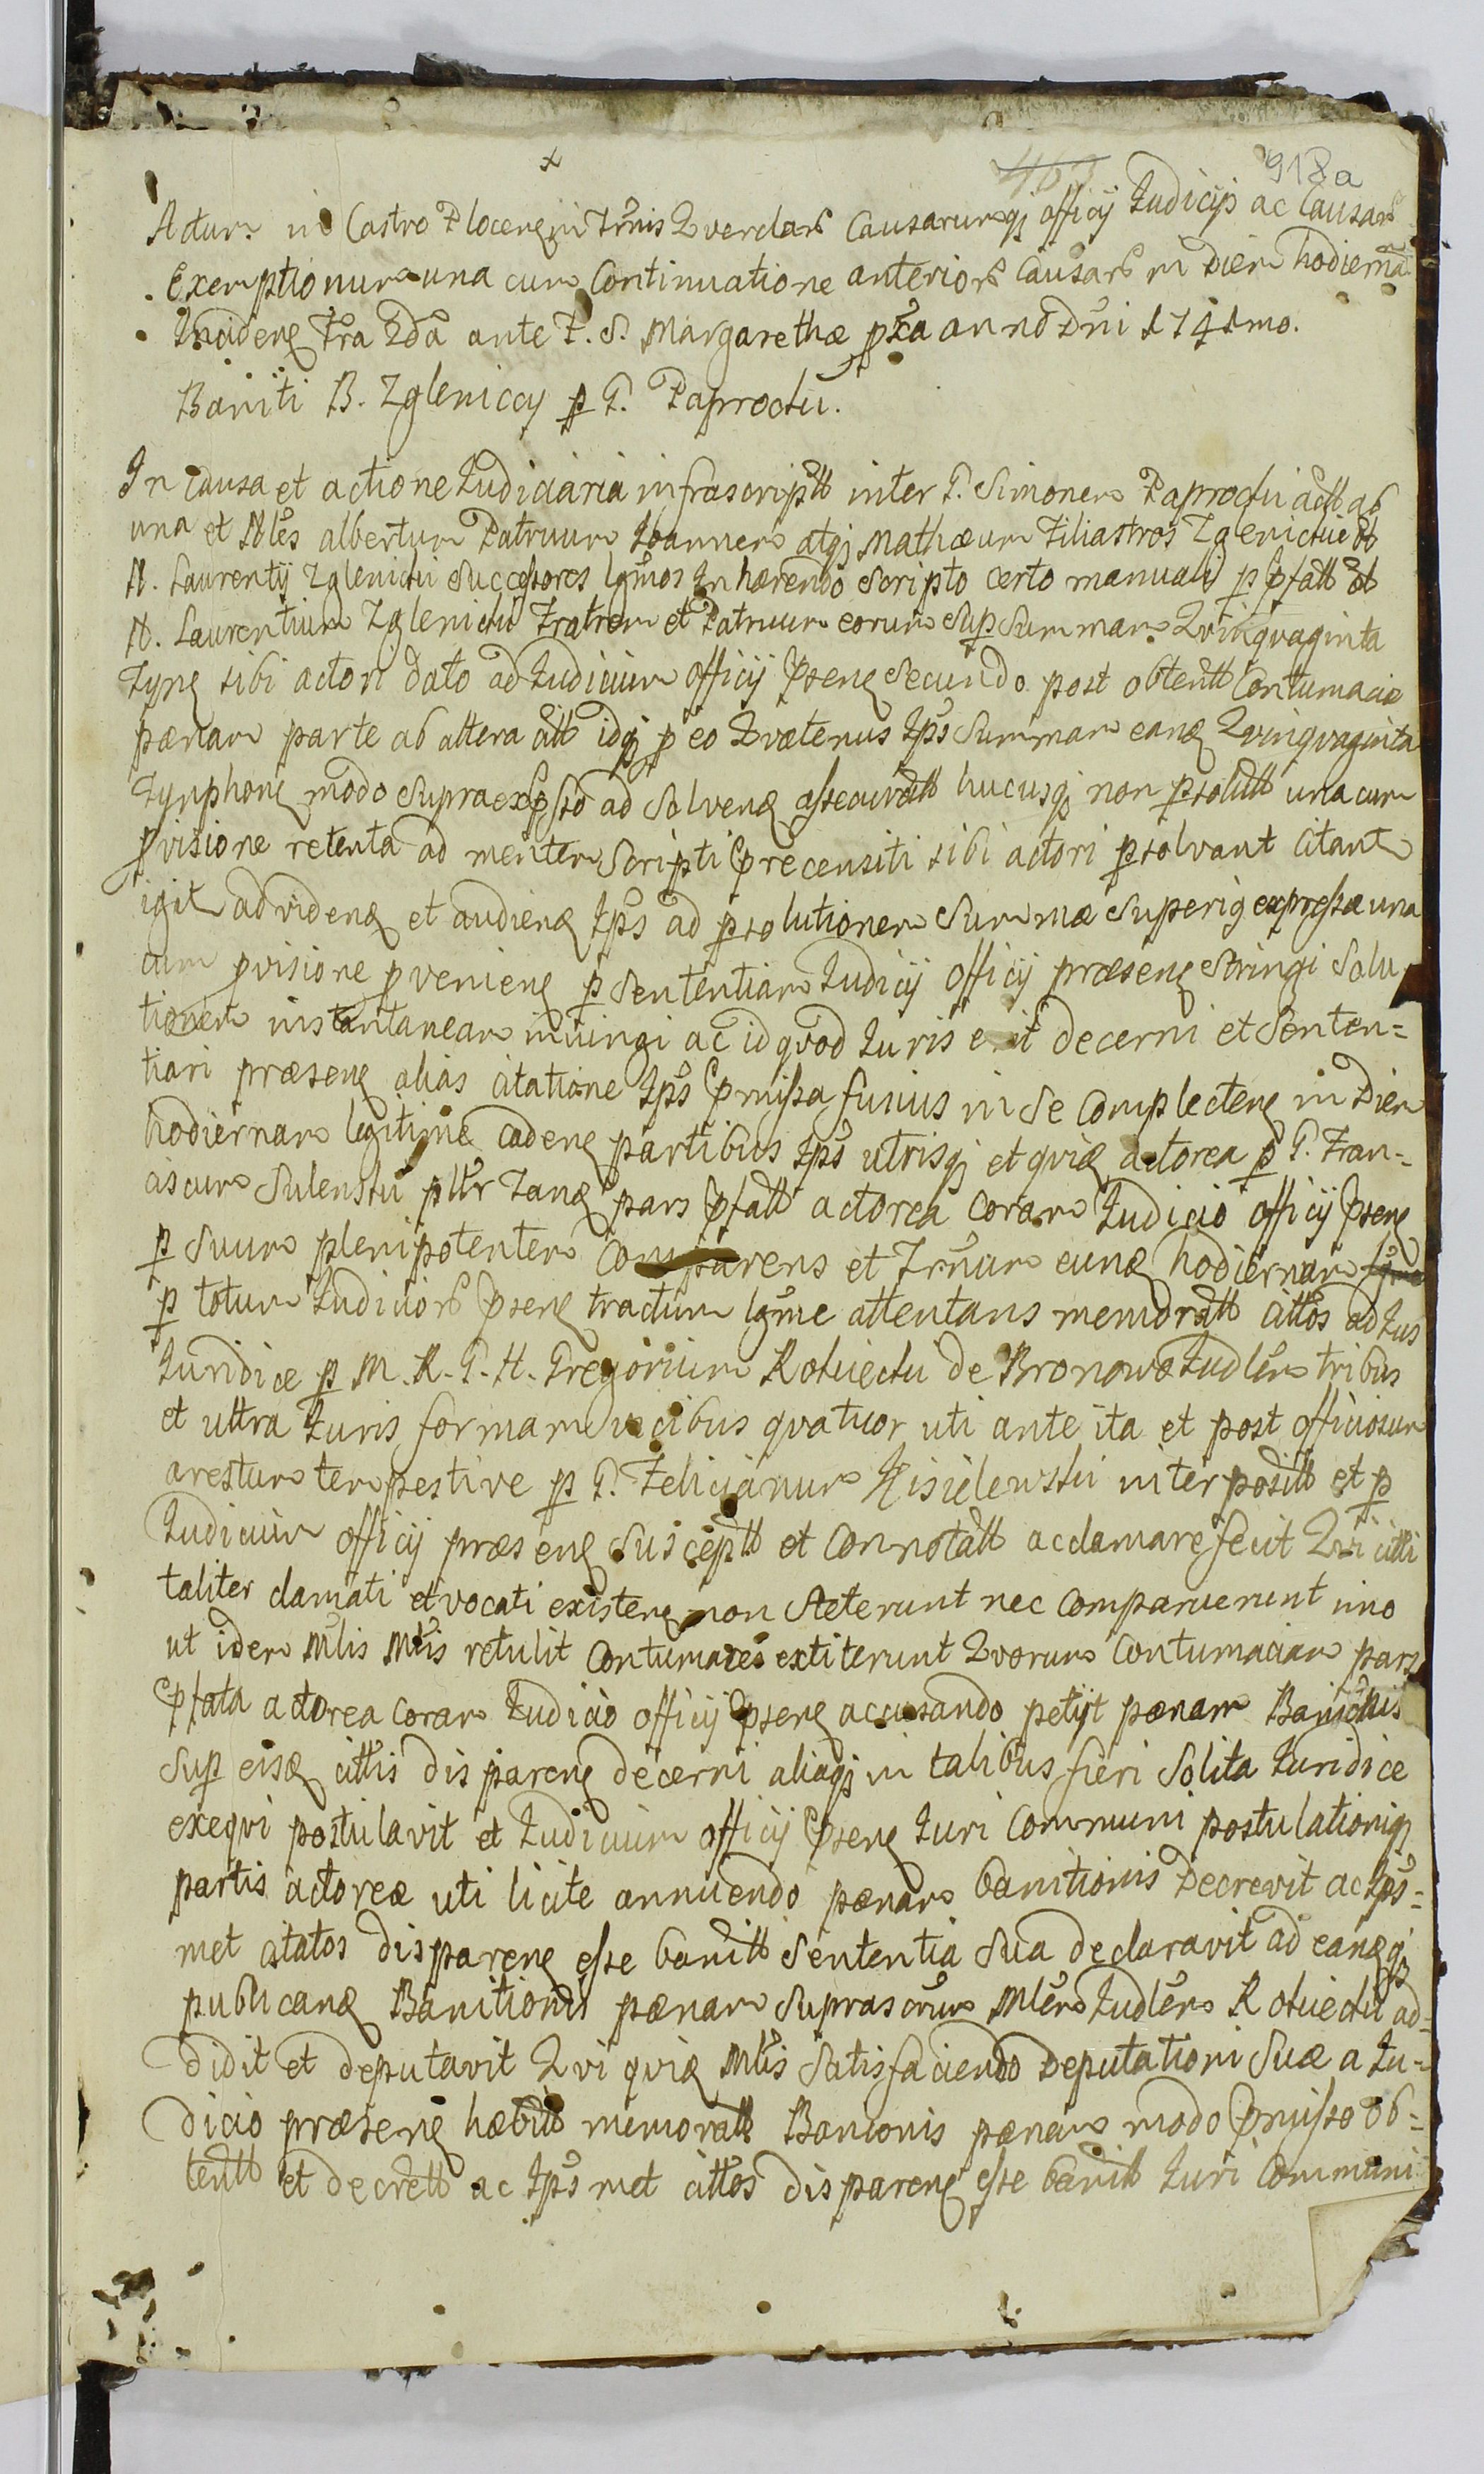 918a
Actum in Castro Plocen in Trnis Qverelar Causarumqs officij Judicijs ac Causar
Exemptionum una cum Continuatione anterior Causar in Diem hodierna
Inciden Fra 2da ante F. S. Margarethæ pxa anno Dni 1741mo.
Baniti B. Zgleniccy p G. Paprocki.
In Causa et actione Judiciaria infrascriptt inter G. Simonem Paprocki actt ab
una et Nles albertum Patruum Joannem atqs Mathæum Filiastros Zglenickie olt
N. Laurentij Zglenicki Successores lgmos Inhærendo Scripto certo manuali p pfatt olt
N. Laurentium Zglenicki Fratrem et Patruum eorum Sup Summam Qvinqvaginta
Tyn sibi actori dato ad Judicium officij psen Secundo post obtentt Contumaciæ
pænam parte ab altera citt idqs p eo Qvatenus Ips Summam eand Qvinqvaginta
Tynphon modo Supraexpsso ad Solvend assecuratt hucusqs non psolutt una cum
pvisione retenta ad mentem Scripti precensiti sibi actori psolvant Citant
igit ad vidend et audiend Ips ad psolutionem Summæ Superig expressæ una
cum pvisione pvenien p Sententiam Judicij officij præsen Stringi Solu
tionem instantaneam iniungi ac id qvod Juris erit decerni et Senten=
tiari præsen alias citatione Ips pmissa fusius in Se Complecten in Diem
hodiernam legitime caden partibus Ips utrisqs et qvid actorea p G. Fran=
ciscum Sulenski plttr Tand pars pfatt actorea Coram Judicio officij psen
p Suum plenipotentem Comparens et Trnum eund hodiernum
p totum Judicior psen tractum lgme attentans memoratt citt̃os ad Jus
Juridice p M. R. G. N. Gregorium Rokicki de Bronowo Judlem tribus
et ultra Juris formam vicibus qvatuor uti ante ita et post officiosum
arestum tempestive p G. Felicianum Kisielewski interpositt et p
Judicium officij præsen Susceptt et Connotatt acclamare fecit Qvi citti
taliter clamati et vocati existen non Steterunt nec Comparuerunt imo
ut idem Mlis Mtlis retulit Contumaces extiterunt Qvorum Contumaciam pars
pfata actorea Coram Judicio officij psen acusando petijt pænam Banionis
Sup eisd cittis disparen decerni aliaqs in talibus fieri Solita Juridice
exeqvi postulavit et Judicium officij psen Juri Communi postulationiqs
partis actoreæ uti licite annuendo pænam banitionis Decrevit ac Ips=
met citatos disparen esse banitt Sententia Sua declaravit ad eandqs
publicand Banitionis pænam Suprascrum Mlem Judlem Rokicki ad=
didit et deputavit Qvi qvid Mtlis Satisfaciendo Deputationi Suæ a Ju=
dicio præsen habitt memoratt Banionis pænam modo pmisso ob=
tentt et decrett ac Ips met cittos disparen esse banitt Juri Communi